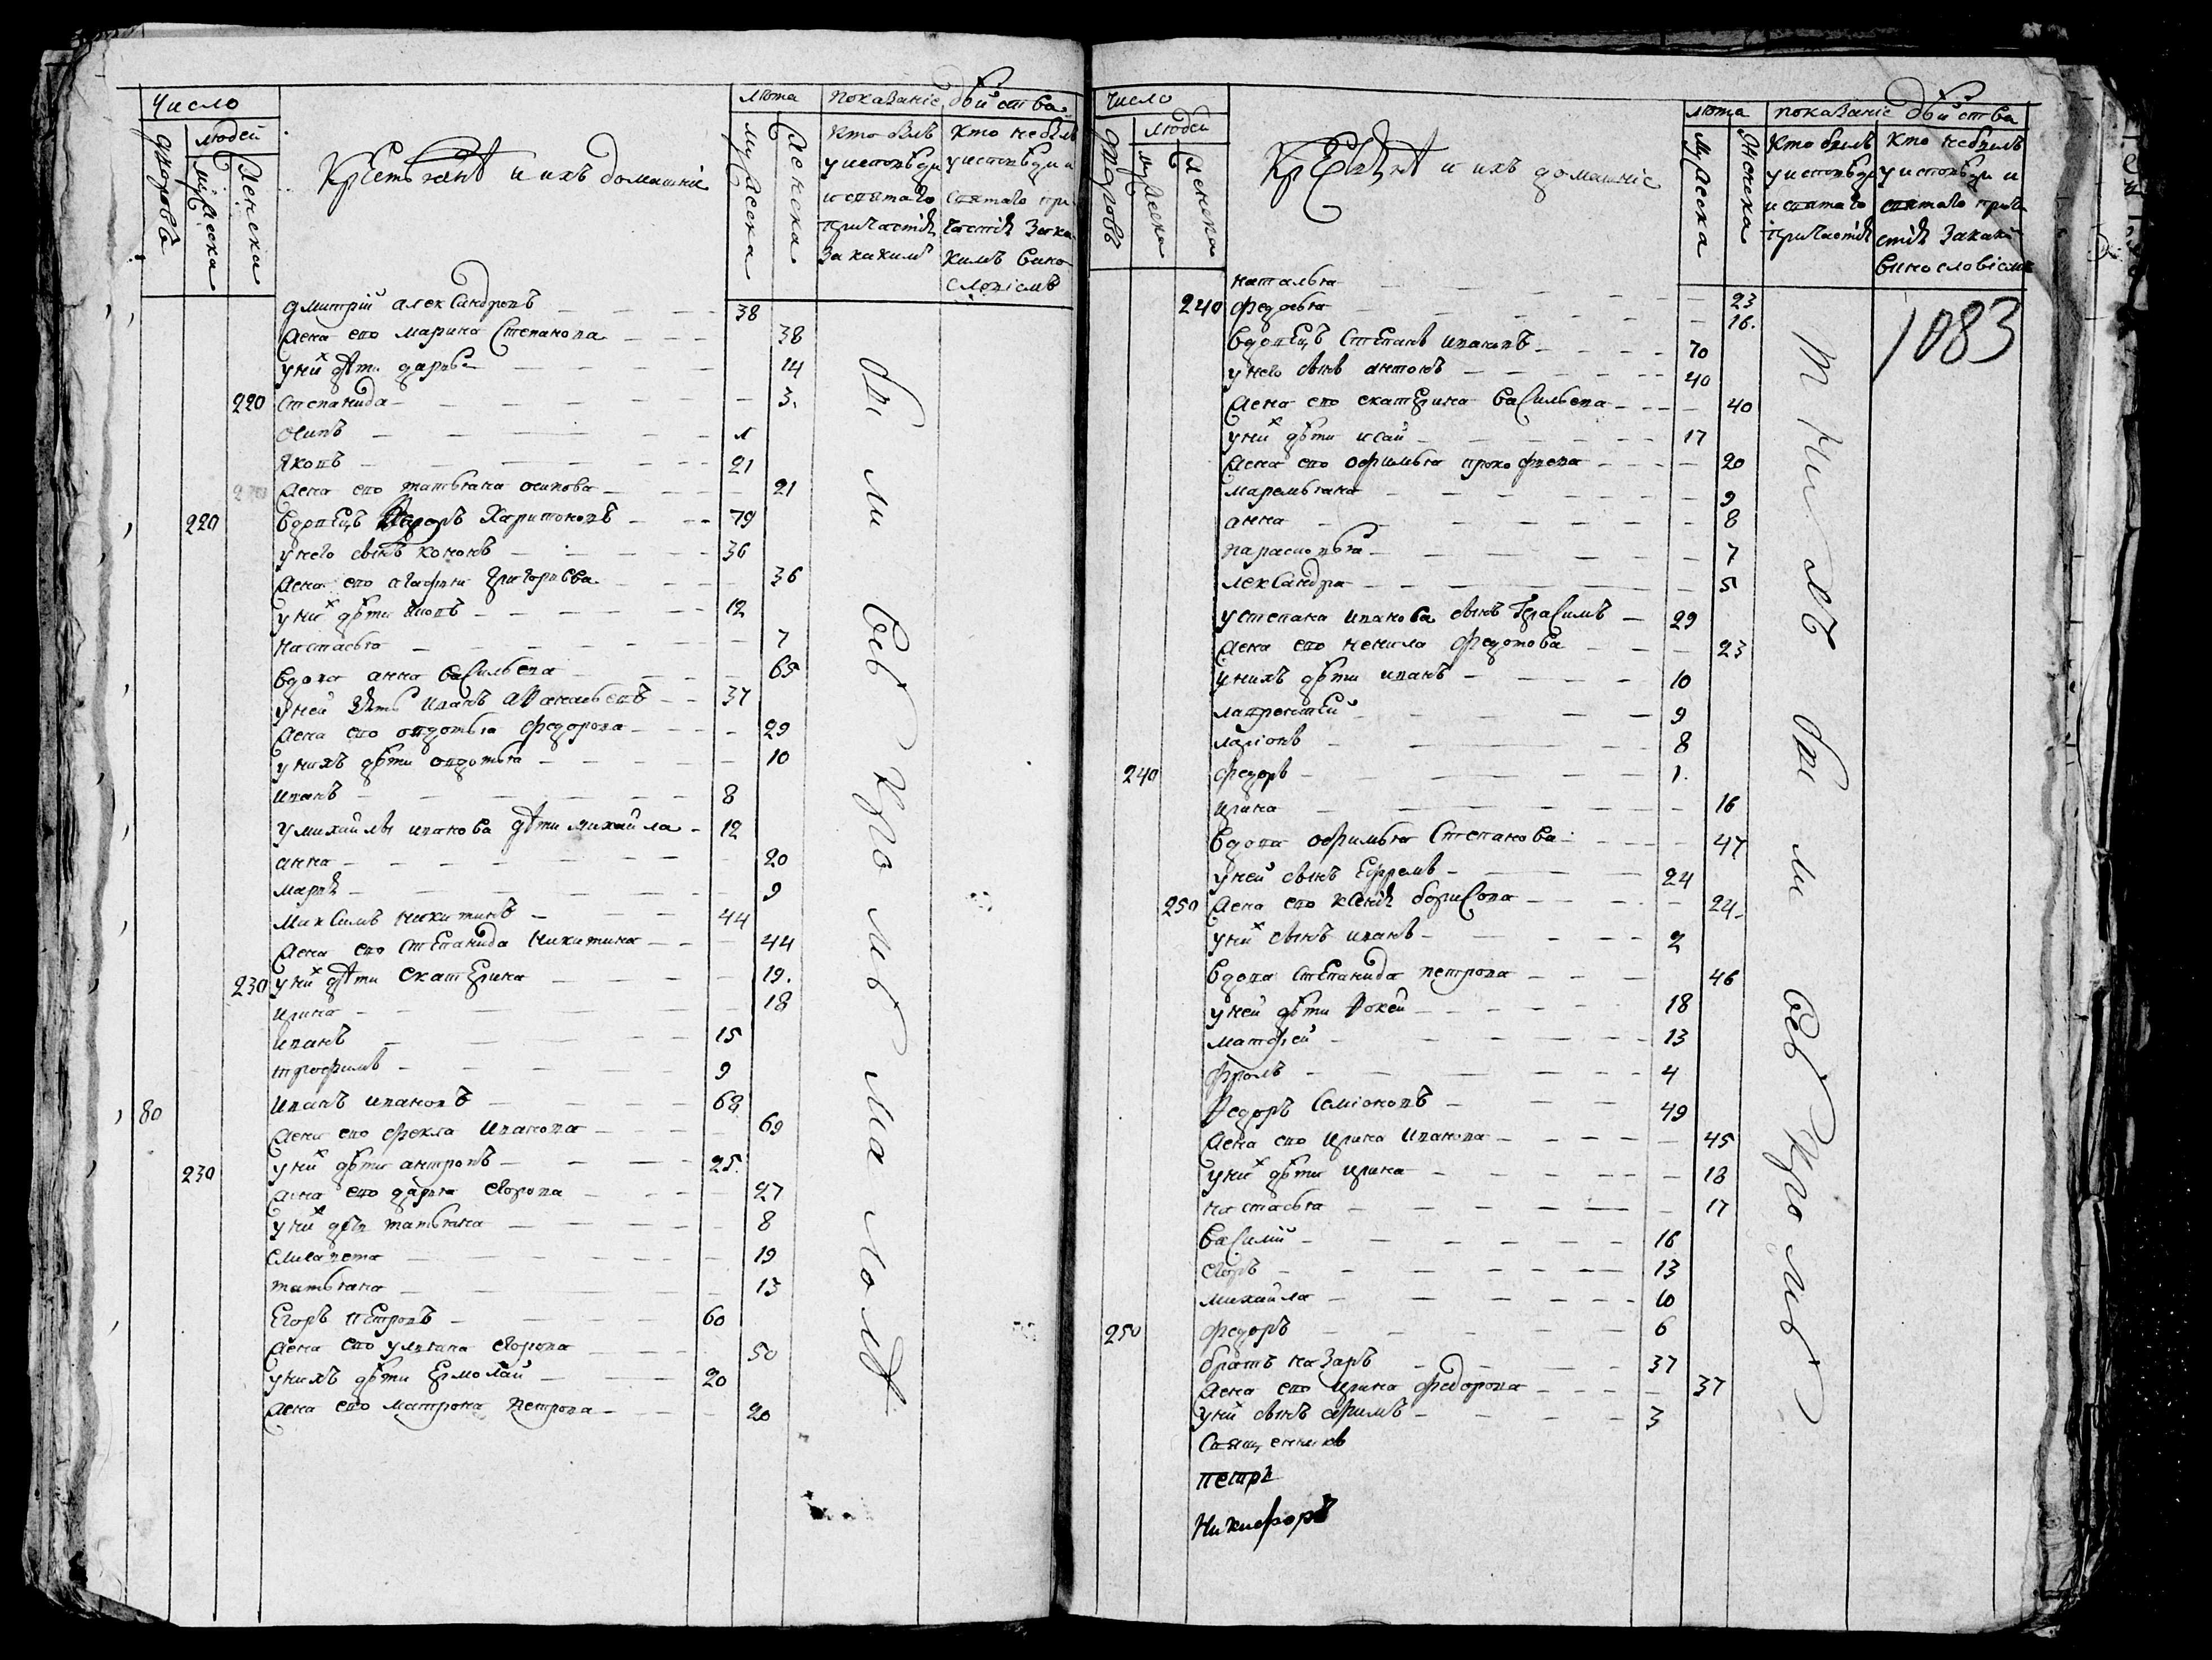 Число
дворовъ
людей
мужеска
женска
Крестьянѣ и ихъ домашніе
лѣта
мужеска
женска
показаніе дѣйства
кто былъ
у исповѣди
и святаго
причастія
за какимъ
кто не былъ
у исповѣди и
святаго при-
частія за ка-
кимъ вино-
словіемъ
дмитрій александровъ 38
жена ево марина Степанова 38
у них дѣти дарья 14
220 степанида 3.
осипъ 1
яковъ 21
жена ево татьяна осипова 21
220 вдовецъ Харитоновъ 79
у него сынъ кононъ 36
жена ево агафия григорьева 36
у них дѣти 12
настасья 7
вдова анна васильева 65
у ней зять иванъ афанасьевъ 37
жена ево овдотья федорова 29
у нихъ дѣти овдотья 10
иванъ 8
у михайлы иванова дѣти михайла 12
анна 20
марѳа 9
максимъ никитинъ 44
жена ево степанида никитина 44
230 у них дѣти екатерина 19.
ирина 18
иванъ 15
трофимъ 9
80 иванъ ивановъ 68
жена ево фекла иванова 69
230 у них дѣти антропъ 25.
жена ево дарья егорова 27
у них дѣти татьяна 8
елисавета 19
татьяна 13
Егоръ петровъ 60
жена ево ульяна егорова 50
у нихъ дѣти ермолай 20
жена ево матрона петрова 20
были всѣ
Число
дворовъ
людей
мужеска
женска
Крестьянѣ и ихъ домашніе
лѣта
мужеска
женска
показаніе дѣйства
кто былъ
у исповѣди
и святаго
причастія
кто не былъ
у исповѣди и
святаго прича-
стія за каким
винословіемъ
наталья 23
240 федосья 16.
вдовецъ степанъ ивановъ 70
у него сынъ антонъ 40
жена ево екатерина васильева 40
у них дѣти исай 17
жена ево офимья прокофьева 20
маремьяна 9
анна 8
парасковья 7
лександра 5
у степана иванова сынъ герасимъ 29
жена ево ненила федотова 23
у нихъ дѣти иванъ 10
лаврентей 9
ларіонъ 8
240 федоръ 1.
ирина 16
вдова офимья Степанова 47
у ней сынъ Ефремъ 24
250 жена ево ксенія борисова 24
у них сынъ иванъ 2
вдова степанида петрова 46
у ней дѣти фокей 18
матфей 13
фролъ 4
Федоръ семіоновъ 49
жена ево ирина иванова 45
у них дѣти ирина 18
настасья 17
василій 16
егоръ 13
михайла 10
250 федоръ 6
братъ назаръ 37
жена ево ирина федорова 37
у них сынъ ефимъ 3
Священникъ
петръ
Никифоръ
были всѣ
1083